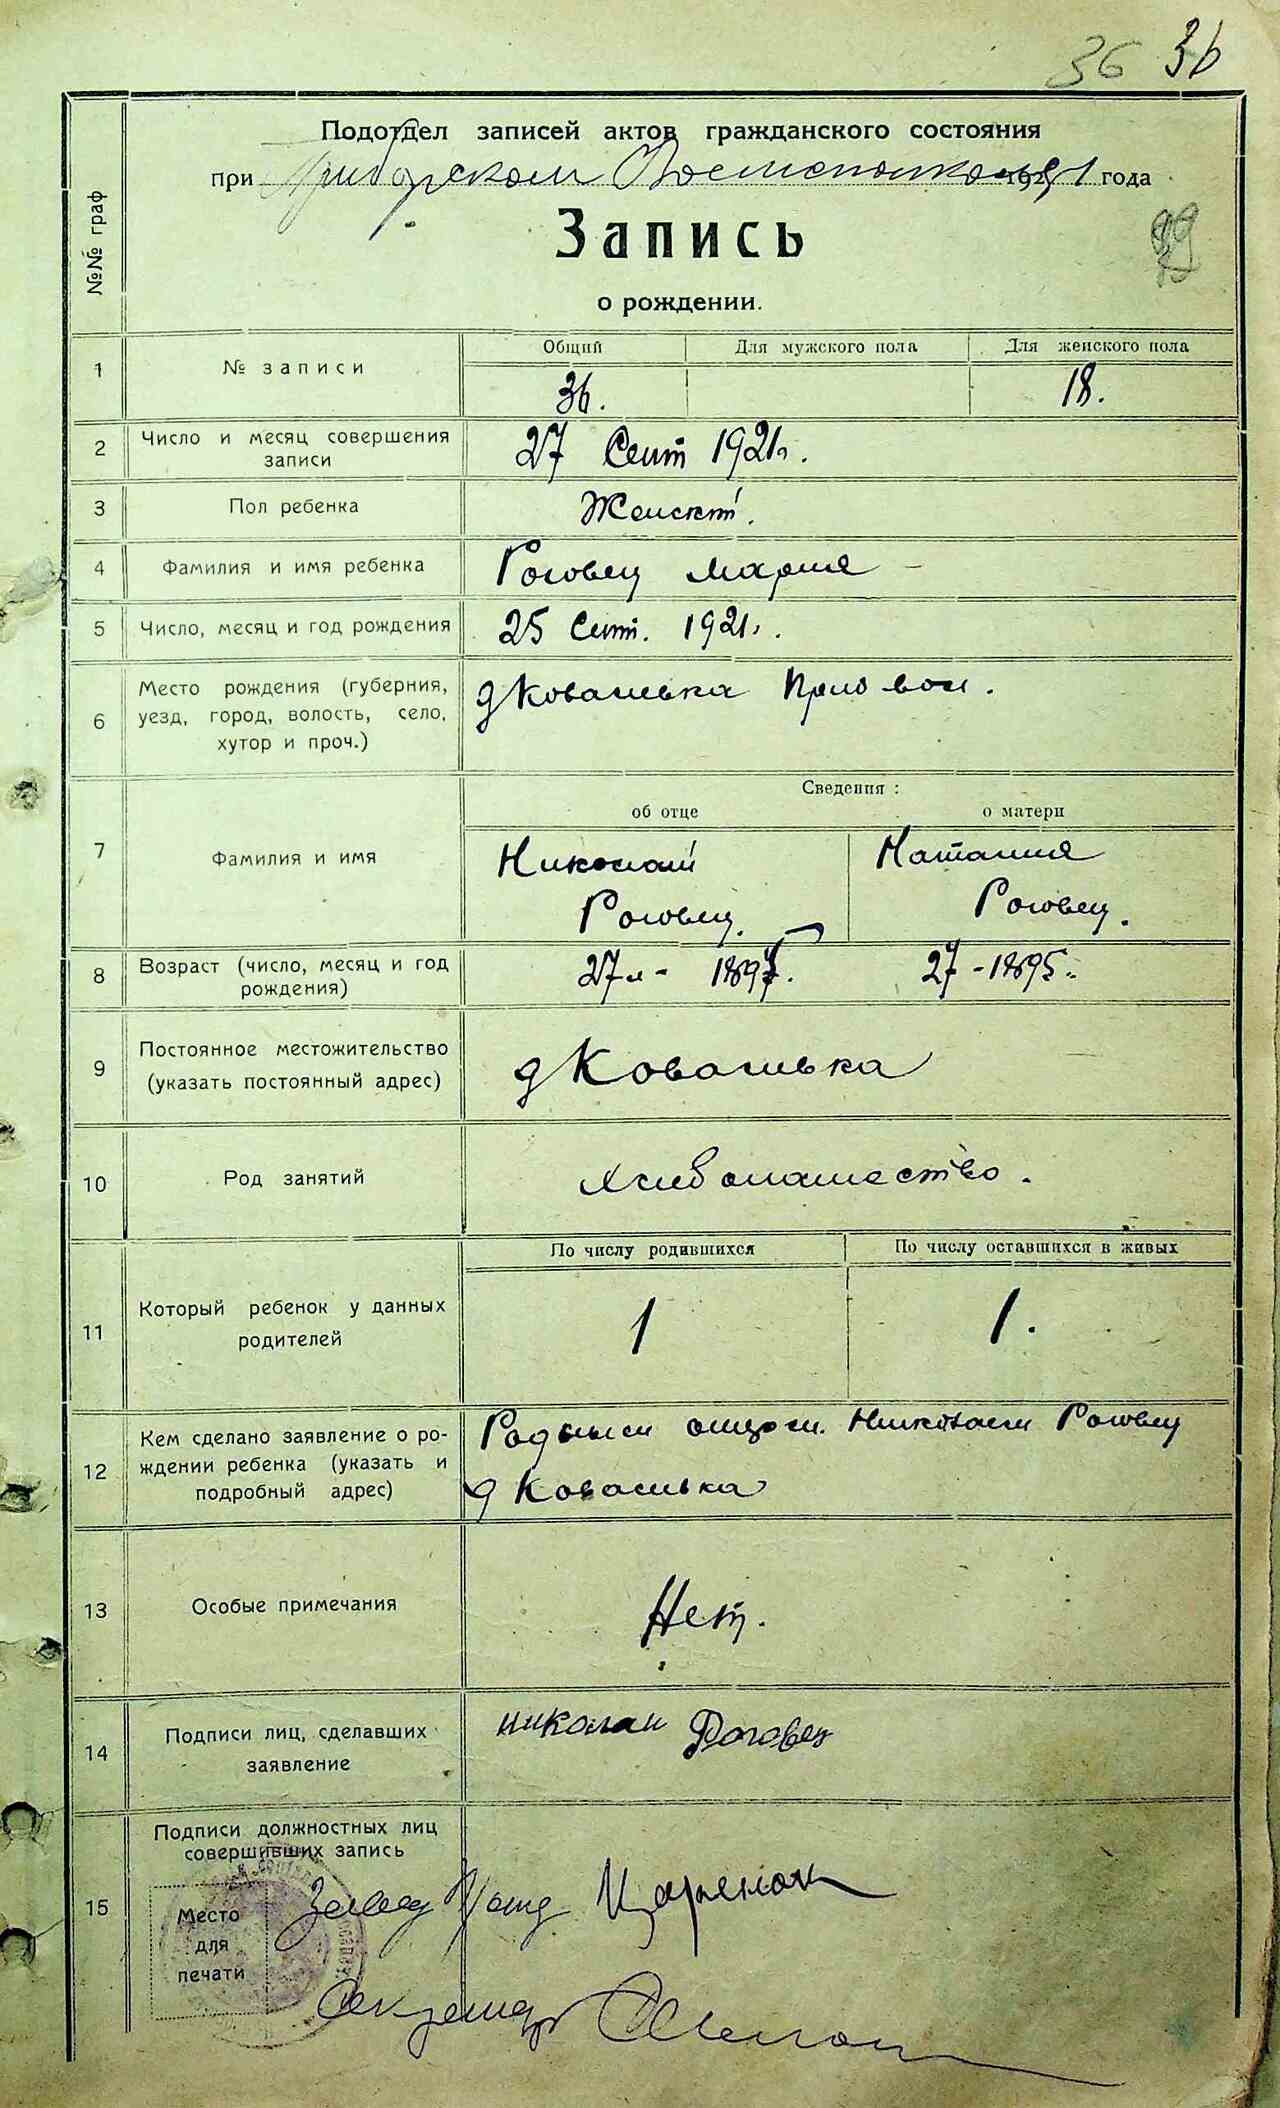 36 36
Подотдел записей актов гражданского состояния
при Приборском Волисполкоме 1921 года
№№ граф
Запись
99
о рождении.
1 № записи Общий Для мужского пола Для женского пола
36. 18.
2 Число и месяц совершения
записи
27 Сент 1921г.
3 Пол ребенка Женский.
4 Фамилия и имя ребенка Роговец Мария
5 Число, месяц и год рождения 25 Сент. 1921г.
6 Место рождения (губерния,
уезд, город, волость, село,
хутор и проч.)
д Ковалька вол.
Сведения:
об отце о матери
7 Фамилия и имя
Николай Наталия
Роговец. Роговец.
8 Возраст (число, месяц и год
рождения)
27л - 27 - 1895.
9 Постоянное местожительство
(указать постоянный адрес)
д Ковалька
10 Род занятий хлебопашество.
11 Который ребенок у данных
родителей
По числу родившихся По числу оставшихся в живых
1 1.
12 Кем сделано заявление о ро-
ждении ребенка (указать и
подробный адрес)
Родным отцом. Николаем Роговец
д Ковалька
13 Особые примечания Нет.
14 Подписи лиц, сделавших
заявление
николай Роговец
15 Подписи должностных лиц
совершивших запись
Место
для
печати
Секретарь